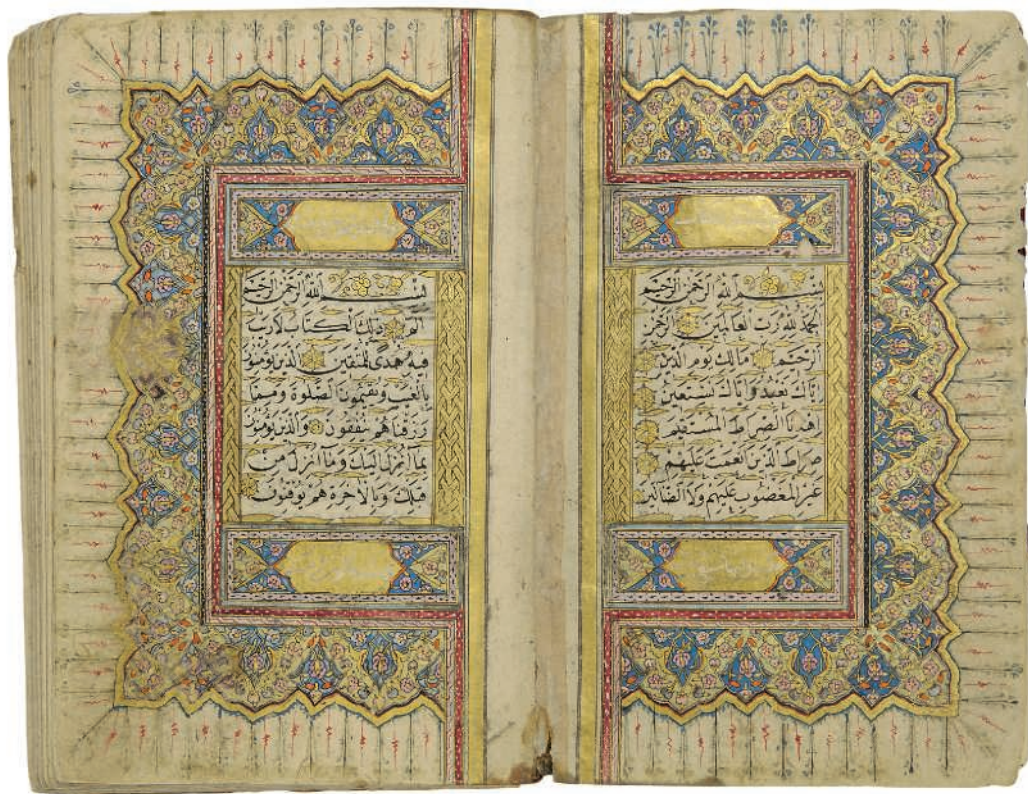 بِسْمِ اللهِ الرَّحْمٰنِ الرَّحِيمِ
اَلْحَمْدُ لِلّٰهِ رَبِّ الْعَالَمِينَ اَلرَّحْمٰنِ
الرَّحِيمِ مَالِكِ يَوْمِ الدِّينِ
اِيَّاكَ نَعْبُدُ وَاِيَّاكَ نَسْتَعِينُ
اِهْدِنَا الصِّرَاطَ الْمُسْتَقِيمَ
صِرَاطَ الَّذِينَ اَنْعَمْتَ عَلَيْهِمْ
غَيْرِ الْمَغْضُوبِ عَلَيْهِمْ وَلَا الضَّالِّينَ
بِسْمِ اللهِ الرَّحْمٰنِ الرَّحِيمِ
الٓمٓ ذٰلِكَ الْكِتَابُ لَا رَيْبَ
فِيهِ هُدًى لِلْمُتَّقِينَ اَلَّذِينَ يُؤْمِنُونَ
بِالْغَيْبِ وَيُقِيمُونَ الصَّلٰوةَ وَمِمَّا
رَزَقْنَاهُمْ يُنْفِقُونَ وَالَّذِينَ يُؤْمِنُونَ
بِمَا اُنْزِلَ اِلَيْكَ وَمَا اُنْزِلَ مِنْ
قَبْلِكَ وَبِالْاٰخِرَةِ هُمْ يُوقِنُونَ